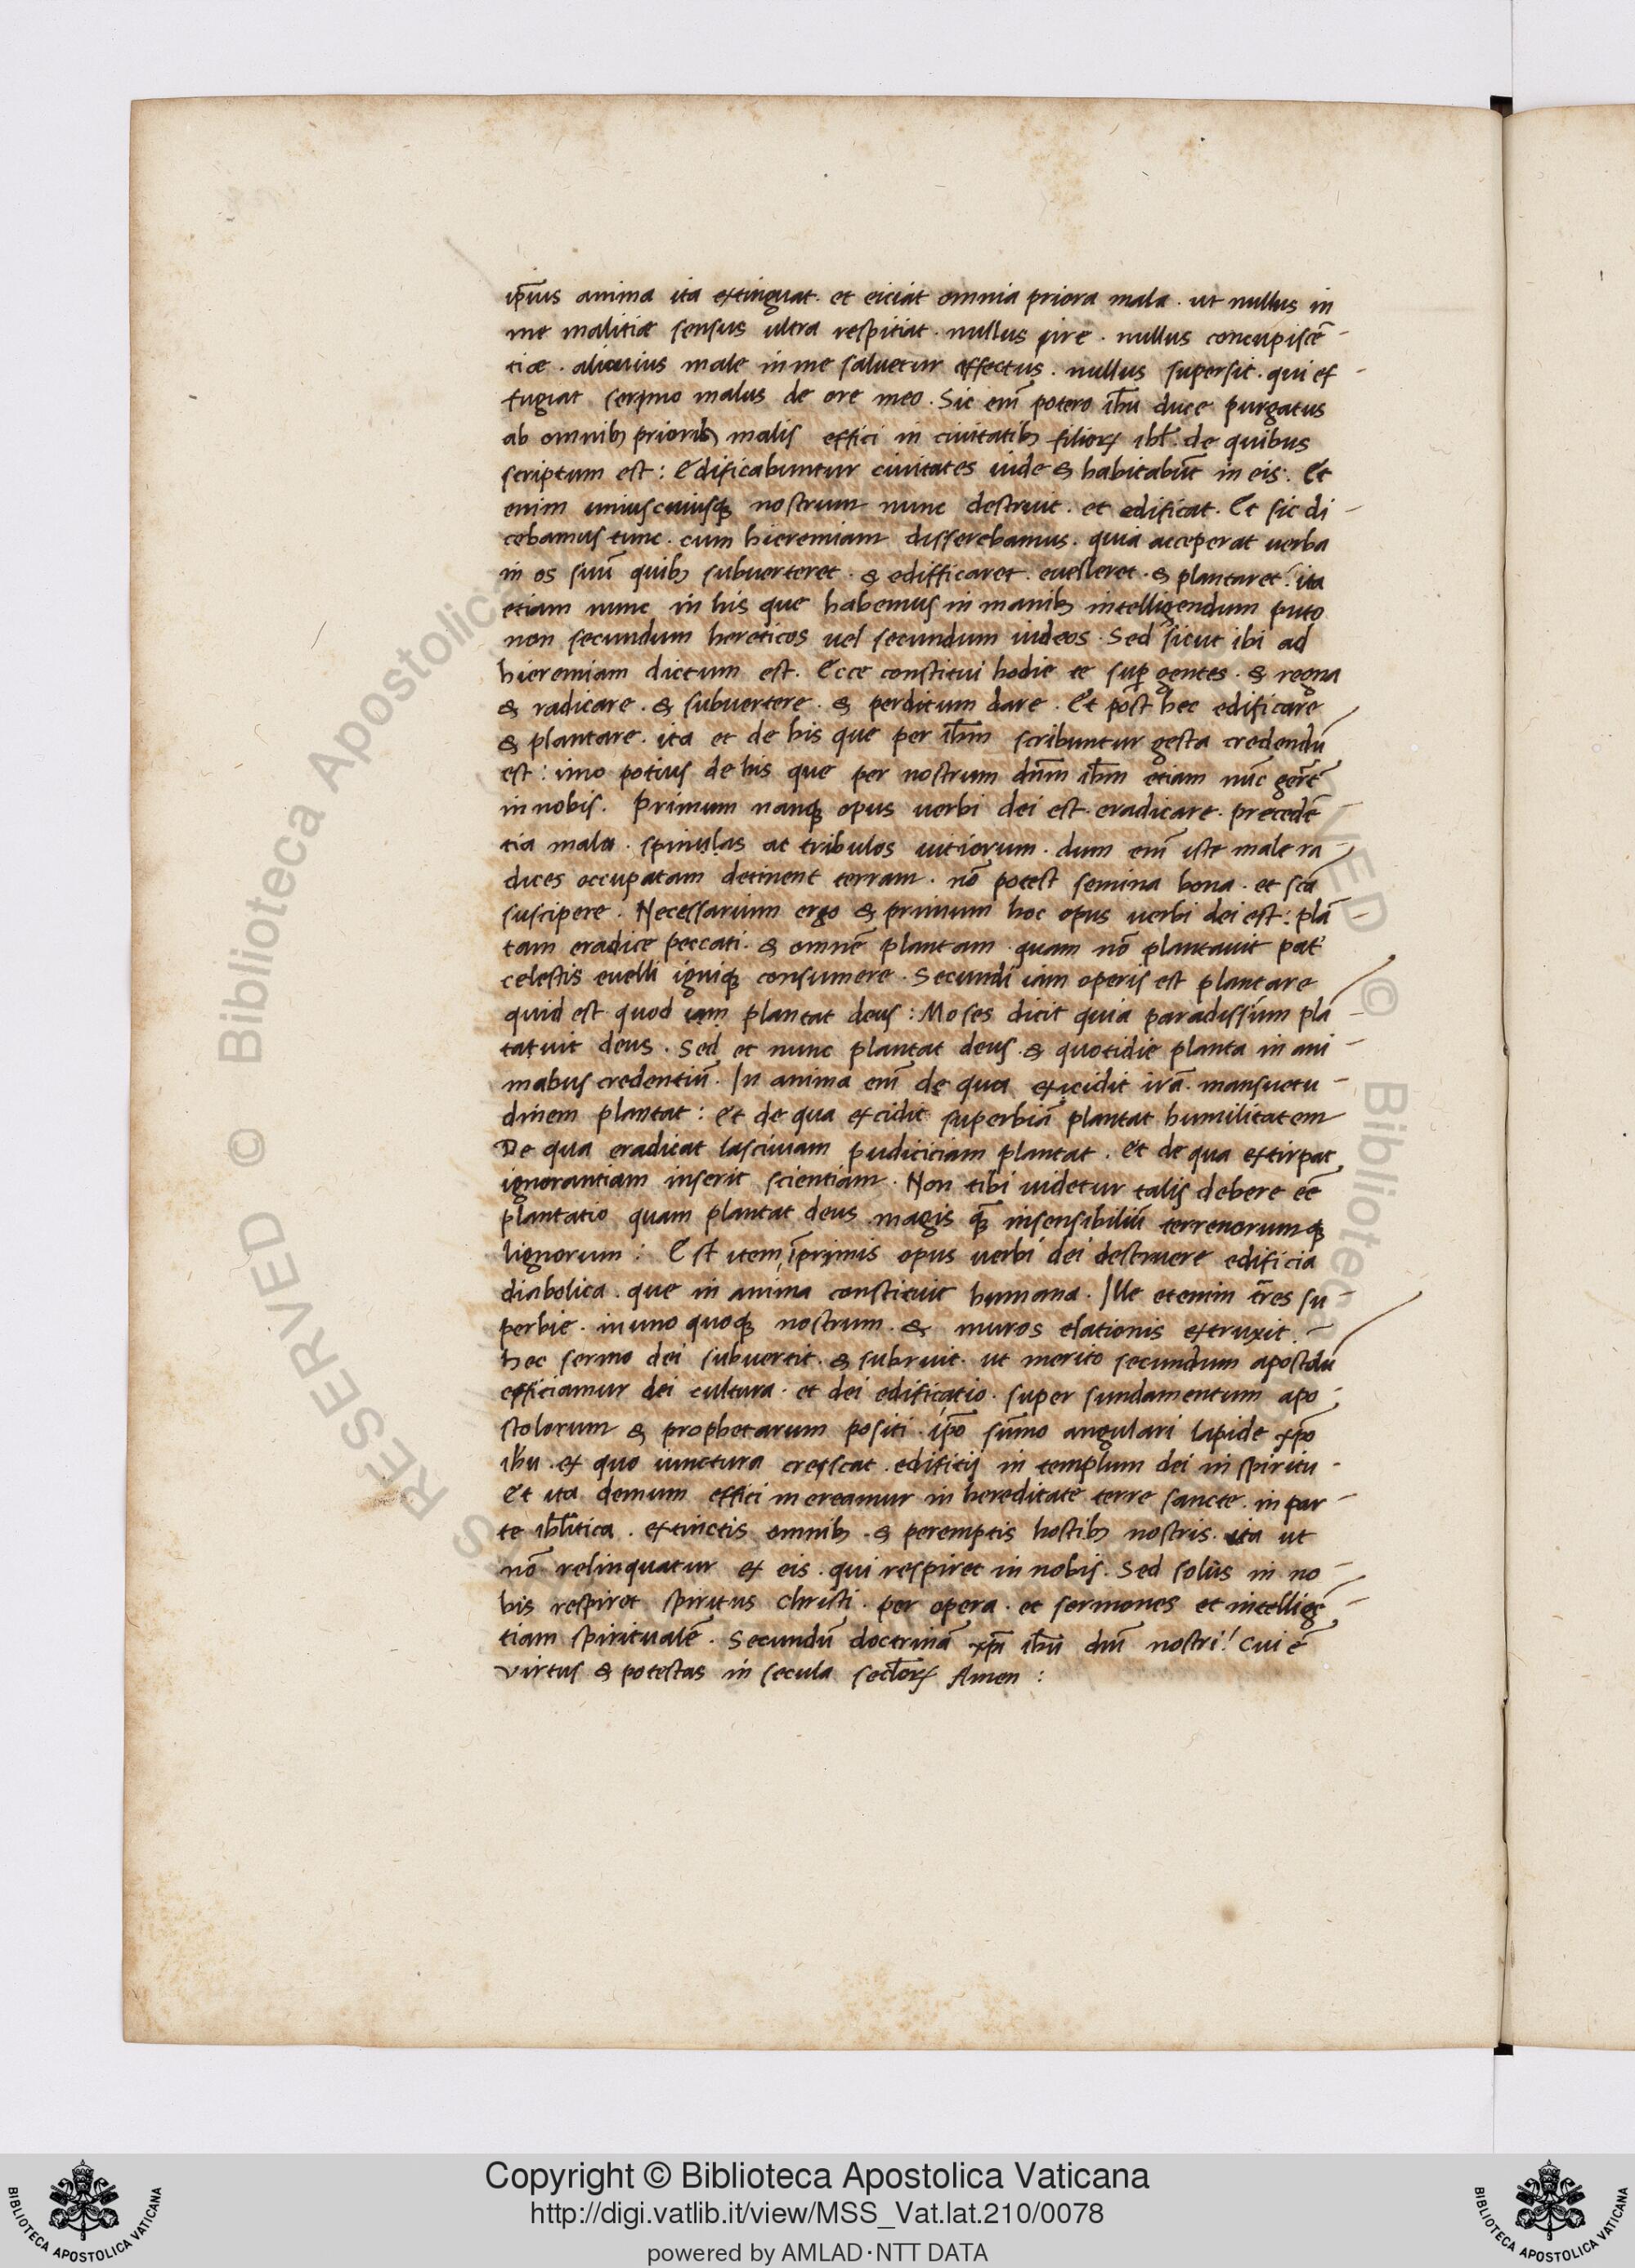 ip̄ius anima ita extinguat. et eiciat omnia priora mala. ut nullus in
me malitiæ sensus ultra respitiat. nullus ire. nullus concupiscē-
tiæ. alicuius male in me saluetur effectus. nullus supersit. qui ef-
fugiat sermo malus de ore meo. Sic em̄ potero ihū duce purgatus
ab omnibꝫ prioribꝫ malis effici in ciuitatibꝫ filioꝝ isl̄. de quibus
scriptum est: Edificabuntur ciuitates iude & habitabūt in eis: Et
enim uniuscuiusqꝫ nostrum nunc destruit. et edificat. Et sic di-
cebamus tunc. cum hieremiam disserebamus. quia acceperat uerba
in os suū quibꝫ subuerteret. & edifficaret. euelleret. & plantaret. ita
etiam nunc in his que habemus in manibꝫ intelligendum puto
non secundum hereticos uel secundum iudeos. Sed sicut ibi ad
hieremiam dictum est. Ecce constitui hodie te suꝑ gentes. & regna
& radicare. & subuertere. & perditum dare. Et post hec edificare
& plantare. ita et de his que per ihm̄ scribuntur gesta credendū
est: imo potius de his que per nostrum dnm̄ ihm̄ etiam nūc gerūt̄
in nobis. Primum nanqꝫ opus uerbi dei est eradicare. precedē-
tia mala. spinulas ac tribulos uitiorum. dum em̄ iste male ra-
dices occupatam detinent terram. nō potest semina bona. et scā
suscipere. Necessarium ergo & primum hoc opus uerbi dei est: plā-
tam eradice peccati. & omnē plantam quam nō plantauit pat̄
celestis euelli igniqꝫ consumere. Secundi iam operis est plantare
quid est quod iam plantat deus: Moses dicit quia paradissum plā-
tatuit deus. Sed et nunc plantat deus. & quotidie planta in ani-
mabus credentiū. In anima em̄ de qua excidit irā. mansuetu-
dinem plantat: et de qua excidit superbiā plantat humilitatem
De qua eradicat lasciuiam pudiciciam plantat. et de qua extirpat
ignorantiam inserit scientiam. Non tibi uidetur talis debere eē
plantatio quam plantat deus magis qꝫ̄ insensibiliū terrenorumqꝫ
lignorum: Est item īprimis opus uerbi dei destruere edificia
diabolica. que in anima constituit humana. Ille etenim t̄res su-
perbie. in uno quoqꝫ nostrum. & muros elationis extruxit.
hec sermo dei subuertit. & subruit. ut merito secundum apostolū
efficiamur dei cultura. et dei edificatio. super fundamentum apo-
stolorum & prophetarum positi. ip̄o sūmo angulari lapide xp̄o
ihu. ex quo iunctura cresscat. edifitij in templum dei in spiritu.
Et ita demum effici mereamur in hereditate terre sancte. in par-
te isl̄itica. extinctis omnibꝫ. & peremptis hostibꝫ nostris. ita ut
nō relinquatur ex eis. qui respiret in nobis. Sed solus in no-
bis respiret spiritus christi. per opera. et sermones et intelligē-
tiam spiritualē. Secundū doctrinā xp̄i ihū dn̄i nostri! Cui ē
virtus & potestas in secula secl̄oꝝ Amen:
Copyright © Biblioteca Apostolica Vaticana
http://digi.vatlib.it/view/MSS_Vat.lat.210/0078
powered by AMLAD·NTT DATA